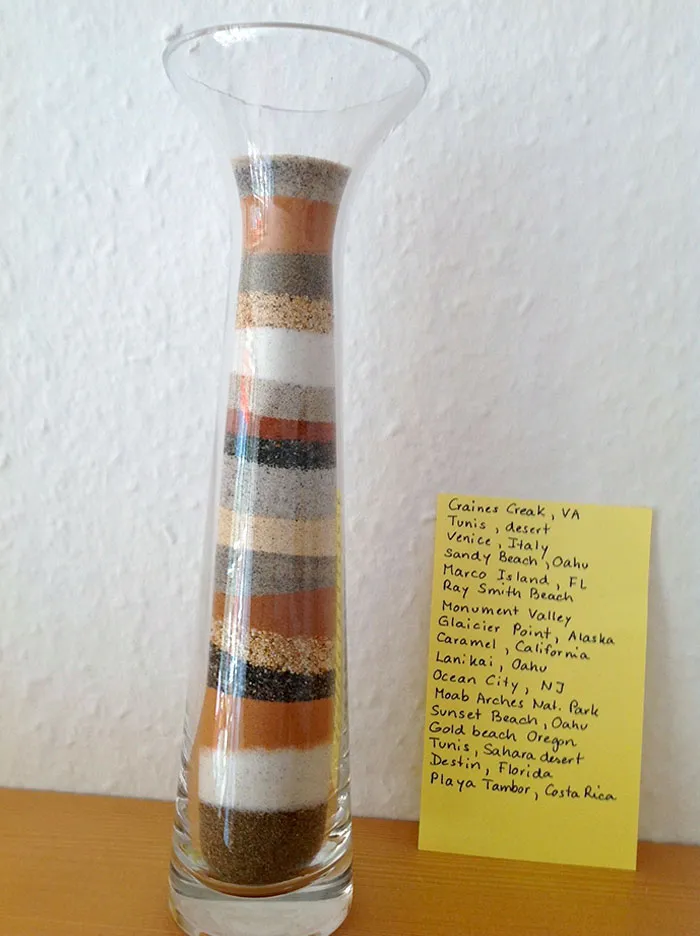 Craines Creak, VA
Tunis, desert
Venice, Italy
Sandy Beach, Oahu
Marco Island, FL
Ray Smith Beach
Monument Valley
Glaicier Point, Alaska
Caramel, California
Lanikai, Oahu
Ocean City, NJ
Moab Arches Nat. Park
Sunset Beach, Oahu
Gold beach Oregon
Tunis, Sahara desert
Destin, Florida
Playa Tambor, Costa Rica